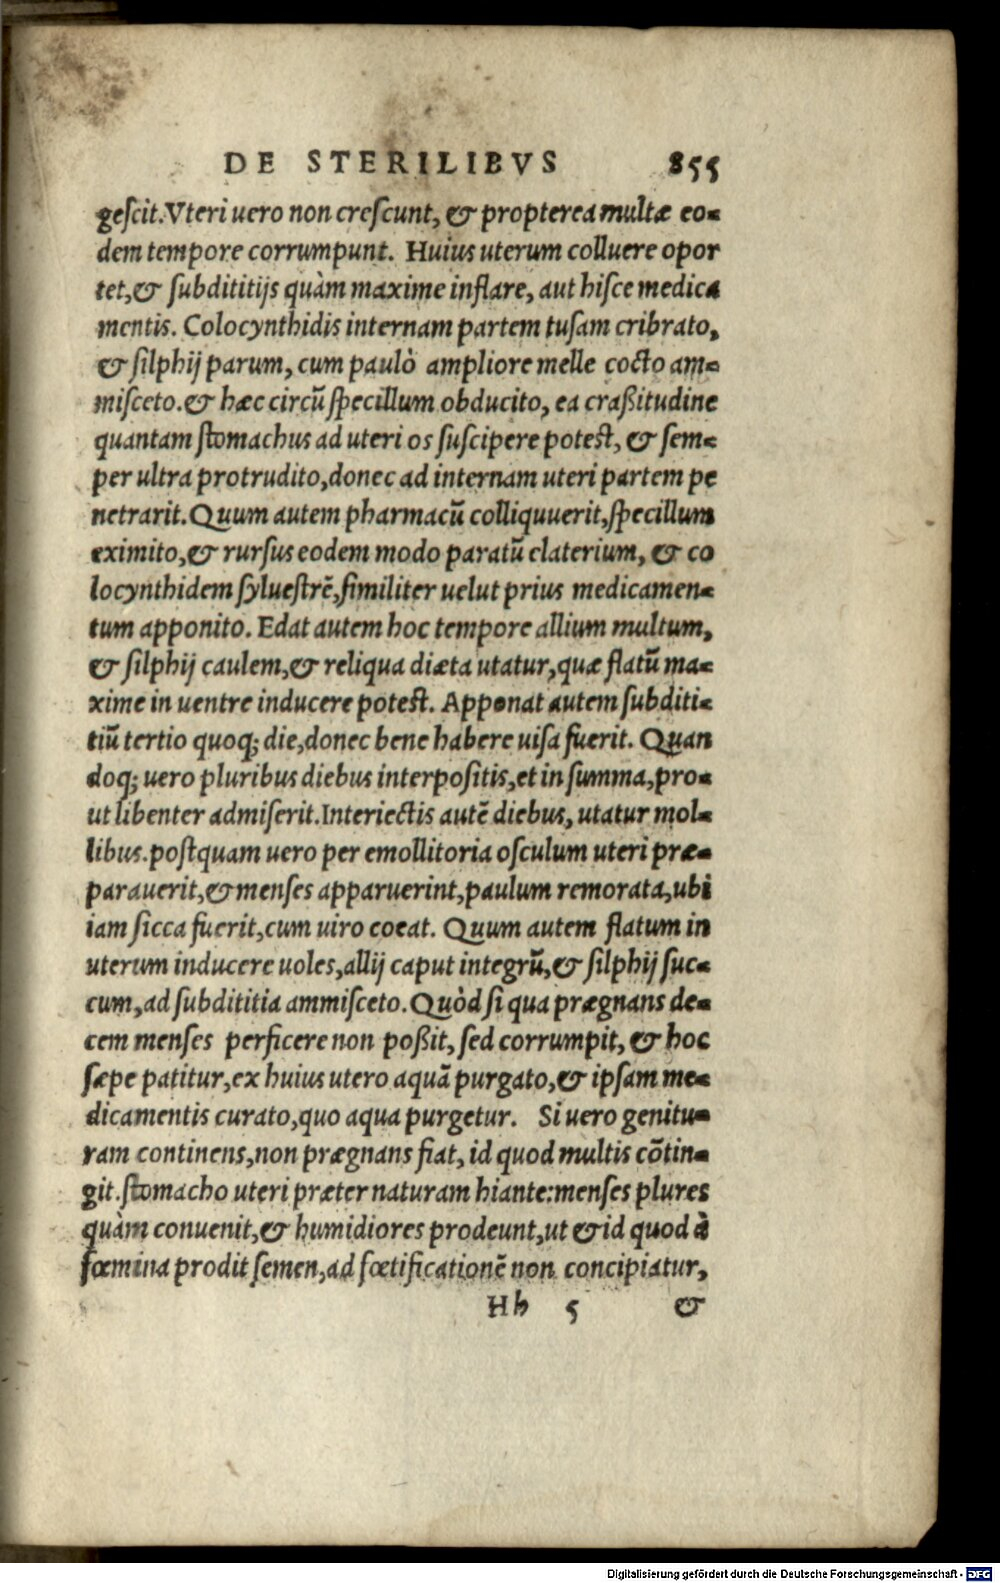 DE STERILIBVS 855
geſcit. Vteri uero non creſcunt, & propterea multæ eo-
dem tempore corrumpunt. Huius uterum colluere opor
tet, & ſubdititijs quàm maxime inflare, aut hiſce medica
mentis. Colocynthidis internam partem tuſam cribrato,
& ſilphij parum, cum paulò ampliore melle cocto am-
miſceto. & hæc circū ſpecillum obducito, ea craßitudine
quantam ſtomachus ad uteri os ſuſcipere poteſt, & ſem-
per ultra protrudito, donec ad internam uteri partem pe
netrarit. Quum autem pharmacū colliquuerit, ſpecillum
eximito, & rurſus eodem modo paratū elaterium, & co
locynthidem ſylueſtrē, ſimiliter uelut prius medicamen-
tum apponito. Edat autem hoc tempore allium multum,
& ſilphij caulem, & reliqua diæta utatur, quæ flatū ma-
xime in uentre inducere poteſt. Apponat autem ſubditi-
tiū tertio quoq; die, donec bene habere uiſa fuerit. Quan
doq; uero pluribus diebus interpoſitis, et in ſumma, pro-
ut libenter admiſerit. Interiectis autē diebus, utatur mol-
libus. poſtquam uero per emollitoria oſculum uteri præ-
parauerit, & menſes apparuerint, paulum remorata, ubi
iam ſicca fuerit, cum uiro coeat. Quum autem flatum in
uterum inducere uoles, allij caput integrū, & ſilphij ſuc-
cum, ad ſubdititia ammiſceto. Quòd ſi qua prægnans de-
cem menſes perficere non poßit, ſed corrumpit, & hoc
ſæpe patitur, ex huius utero aquā purgato, & ipſam me-
dicamentis curato, quo aqua purgetur. Si uero genitu-
ram continens, non prægnans fiat, id quod multis cōtin-
git. ſtomacho uteri præter naturam hiante: menſes plures
quàm conuenit, & humidiores prodeunt, ut & id quod à
fœmina prodit ſemen, ad fœtificationē non concipiatur,
Hh 5 &
Digitalisierung gefördert durch die Deutsche Forschungsgemeinschaft - DFG